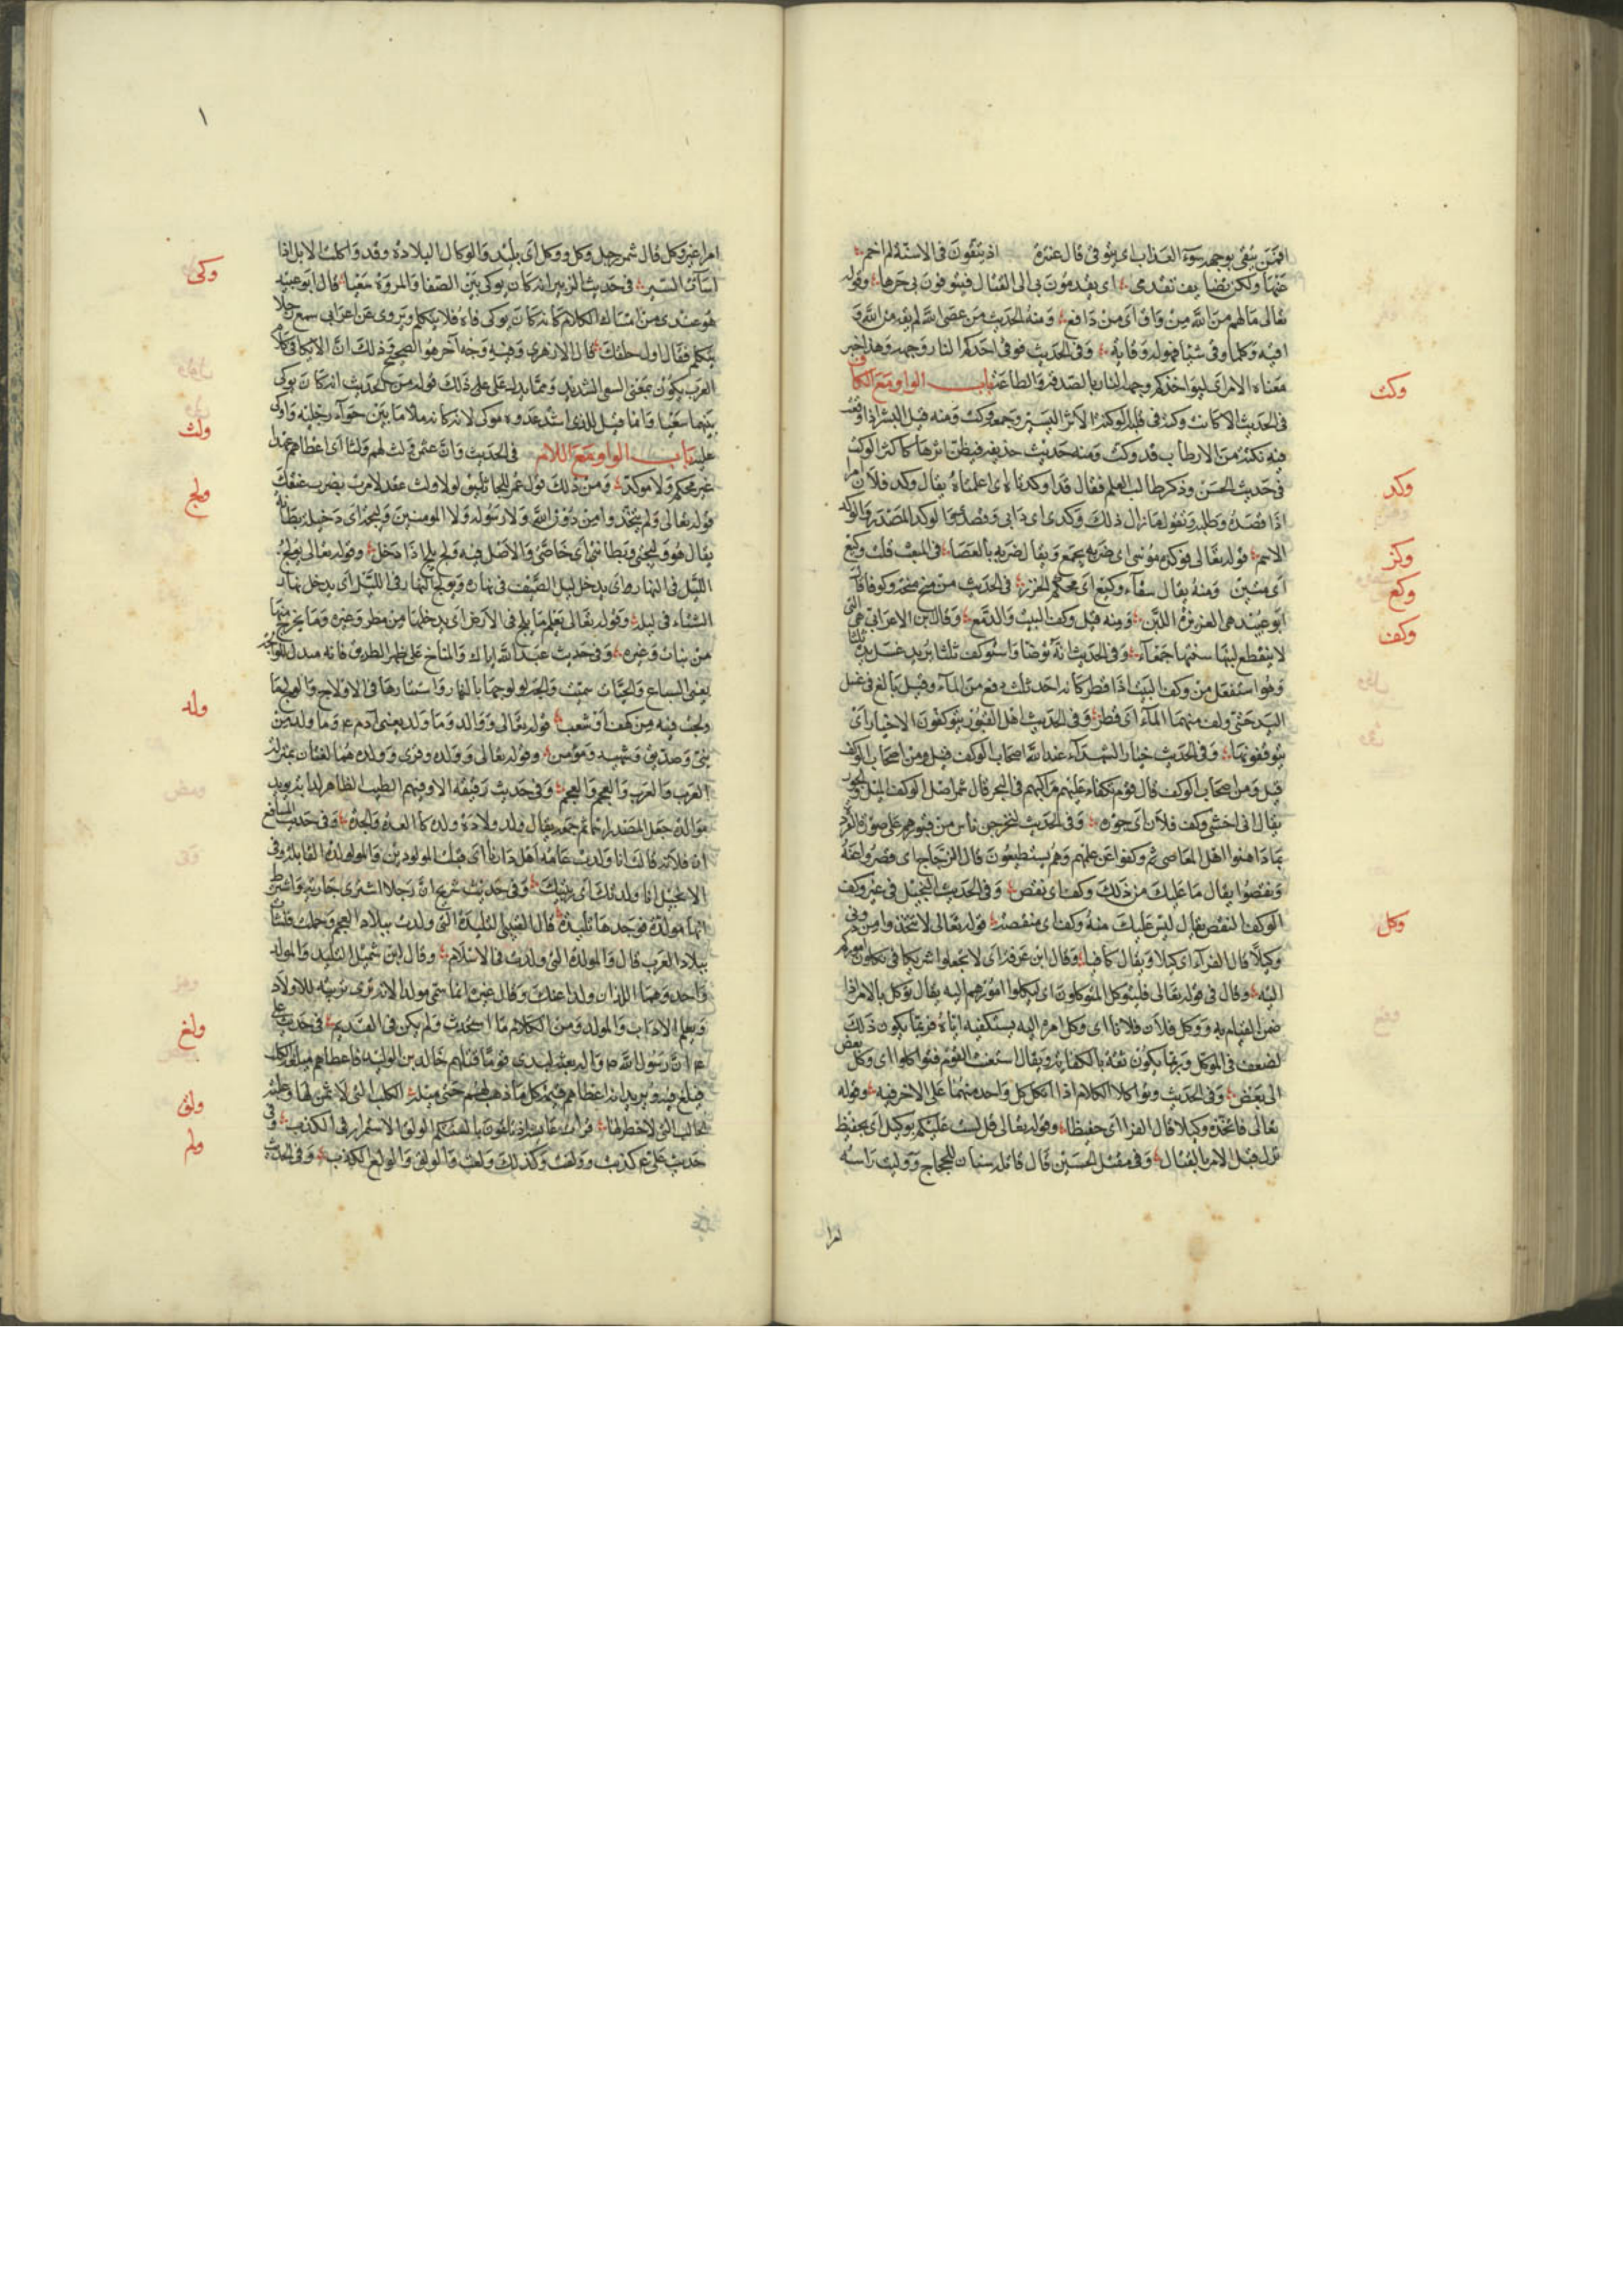 افمن يتقي بوجهه سوء العذاب اي يتوقى قال عنترة اذ يتقون في الاسنة لم اخم
عنها ولكن تضايق مقدمي اي يقدمون بي الى القتال فيتوقون بي حرها وقوله
تعالى مالهم من الله من واق اي من دافع ومنه الحديث من عصى الله لم يقه من الله و
اقية وكلما وقى شيئا فهو له وقاية وفي الحديث فوقى احدكم النار وجهه وهذا خبر
معناه الامر اي ليق احدكم وجهه النار بالصدقة والطاعة باب الواو مع الكاف
في الحديث الا كانت وكتة في قلبه الوكتة الاثر اليسير وجمعه وكت ومنه قيل للبسر اذا وقعت
فيه نكتة من الارطاب قد وكت ومنه حديث حذيفة فيظل اثرها كاثر الوكت
في حديث الحسن وذكر طالب العلم فقال قد اوكدتاه اي اعملتاه يقال وكد فلان امرا
اذا قصده وطلبه وتقول مازال ذلك وكدي اي دابي وقصدي والوكد المصدر والوكد
الاسم قوله تعالى فوكزه موسى اي ضربه بجمع ويقال ضربه بالعصا في المبعث قلب وكيع
اي متين ومنه يقال سقاء وكيع اي محكم الخرز في الحديث من منح منحة وكوفا قال
ابو عبيد هي الغزيرة اللبن ومنه قيل وكف البيت والدمع وقال ابن الاعرابي هي التي
لا ينقطع لبنها سنتها جمعاء وفي الحديث انه توضا واستوكف ثلثا يريد غسل يديه ثلثا
وهو استفعل من وكف البيت اذا قطر كانه اخذ ثلث دفع من الماء وقيل بالغ في غسل
اليد حتى وكف منهما الماء اي قطر وفي الحديث اهل القبور يتوكفون الاخبار اي
يتوقعونها وفي الحديث خيار الشهداء عند الله اصحاب الوكف قيل ومن اصحاب الوكف
قيل ومن اصحاب الوكف قال قوم تكفاء عليهم مراكبهم في البحر قال شمر اصل الوكف الميل والجور
يقال اني لاخشى وكف فلان اي جوره وفي الحديث ليخرجن ناس من قبورهم على صورة القردة
بما داهنوا اهل المعاصي ثم وكفوا عن علمهم وهم يستطيعون قال الزجاج اي قصروا عنه
ونقصوا يقال ما عليك من ذلك وكف اي نقص وفي الحديث البخيل في غير وكف
الوكف النقص يقال ليس عليك منه وكف اي منقصة قوله تعالى لا تتخذوا من دوني
وكيلا قال الفراء اي كفيلا ويقال كافيا وقال ابن عرفة اي لا تجعلوا شريكا لي تكلون اموركم
اليه وقال في قوله تعالى فليتوكل المتوكلون اي ليكلوا امورهم اليه يقال توكل بالامر اذا
ضمن القيام به ووكل فلان فلانا اي وكل امره اليه يستكفيه اياه فربما يكون ذلك
لضعف في الموكل وربما يكون ثقة بالكفاية ويقال استعنت القوم فتواكلوا اي وكل بعض
الى بعض وفي الحديث وتواكلا الكلام اذا اتكل كل واحد منهما على الاخر فيه وقوله
تعالى فاتخذه وكيلا قال الفراء اي حفيظا وقوله تعالى قل لست عليكم بوكيل اي بحفيظ
نزل قبل الامر بالقتال وفي مقتل الحسين قال قاتله سنان للحجاج ووليت راسه
امرا
وكت
وكد
وكز
وكع
وكف
وكل
امرا غير وكل قال شمر رجل وكل ووكل اي بليد والوكال البلادة وقد واكلت الابل اذا
اسأت السير في حديث الزبير انه كان يوكي بين الصفا والمروة سعيا قال ابو عبيد
هو عندي من امساك الكلام كانه كان يوكي فاه فلا يتكلم ويروى عن اعرابي سمع رجلا
يتكلم فقال اوك حلقك قال الازهري وفيه وجه آخر هو الصحيح وذلك ان الايكاء في كلام
العرب يكون بمعنى السعي الشديد ومما يدل على ذلك قوله في الحديث انه كان يوكي
بينهما سعيا وانما قيل للذي اشتد عدوه موك لانه كانه ملأ ما بين خواء رجليه واوكى
عليه باب الواو مع اللام في الحديث وان عثمن ولث لهم ولثا اي اعطاهم عهدا
غير محكم ولا موكد ومن ذلك قول عمر للجاثليق لولا ولث عقد لامرت بضرب عنقك
قوله تعالى ولم يتخذوا من دون الله ولا رسوله ولا المومنين وليجة اي دخيلة بطانة
يقال هو وليجتي وبطانتي اي خاصتي والاصل فيه ولج يلج اذا دخل وقوله تعالى يولج
الليل في النهار اي يدخل ليل الصيف في نهاره ويولج النهار في الليل اي يدخل نهار
الشتاء في ليله وقوله تعالى يعلم ما يلج في الارض اي يدخلها من مطر وغيره وما يخرج منها
من نبات وغيره وفي حديث عبد الله اياك والمناخ على ظهر الطريق فانه منزل للوالجة
يعني السباع والحيات سميت والجة لولوجها بالنهار واستتارها في الاولاج والولج ما
ولجت فيه من كهف او شعب قوله تعالى ووالد وما ولد يعني آدم ع وما ولد من
نبي وصديق وشهيد ومومن وقوله تعالى وولده وقرئ وولده هما لغتان بمنزلة
العرب والعرب والعجم والعجم وفي حديث رقيقة الا وفيهم الطيب الطاهر لداته يريد
موالده جعل المصدر اسما ثم جمعه يقال ولد ولادة ولدة كالعدة والجدة وفي حديث المسافع
ان فلانة قالت انا ولدت عامة اهل دارنا اي قبلت المولودين والمولدة القابلة وفي
الانجيل انا ولدتك اي ربيتك وفي حديث شريح ان رجلا اشترى جارية واشترط
انها مولدة فوجدها تليدة قال القتيبي التليدة التي ولدت ببلاد العجم وحملت فنشأت
ببلاد العرب قال والمولدة التي ولدت في الاسلام وقال ابن شميل التليد والمولد
واحد وهما اللذان ولدا عندك وقال غيره انما سمي مولدا لانه تربى تربية للاولاد
ويعلم الاداب والمولد ومن الكلام ما استحدث ولم يكن في القديم في حديث علي
ع ان رسول الله ص وآله بعثه ليدي قوما قتلهم خالد بن الوليد فاعطاهم ميلغة الكلب
وكى
ولث
ولج
ولد
ولغ
ولق
ولم
١